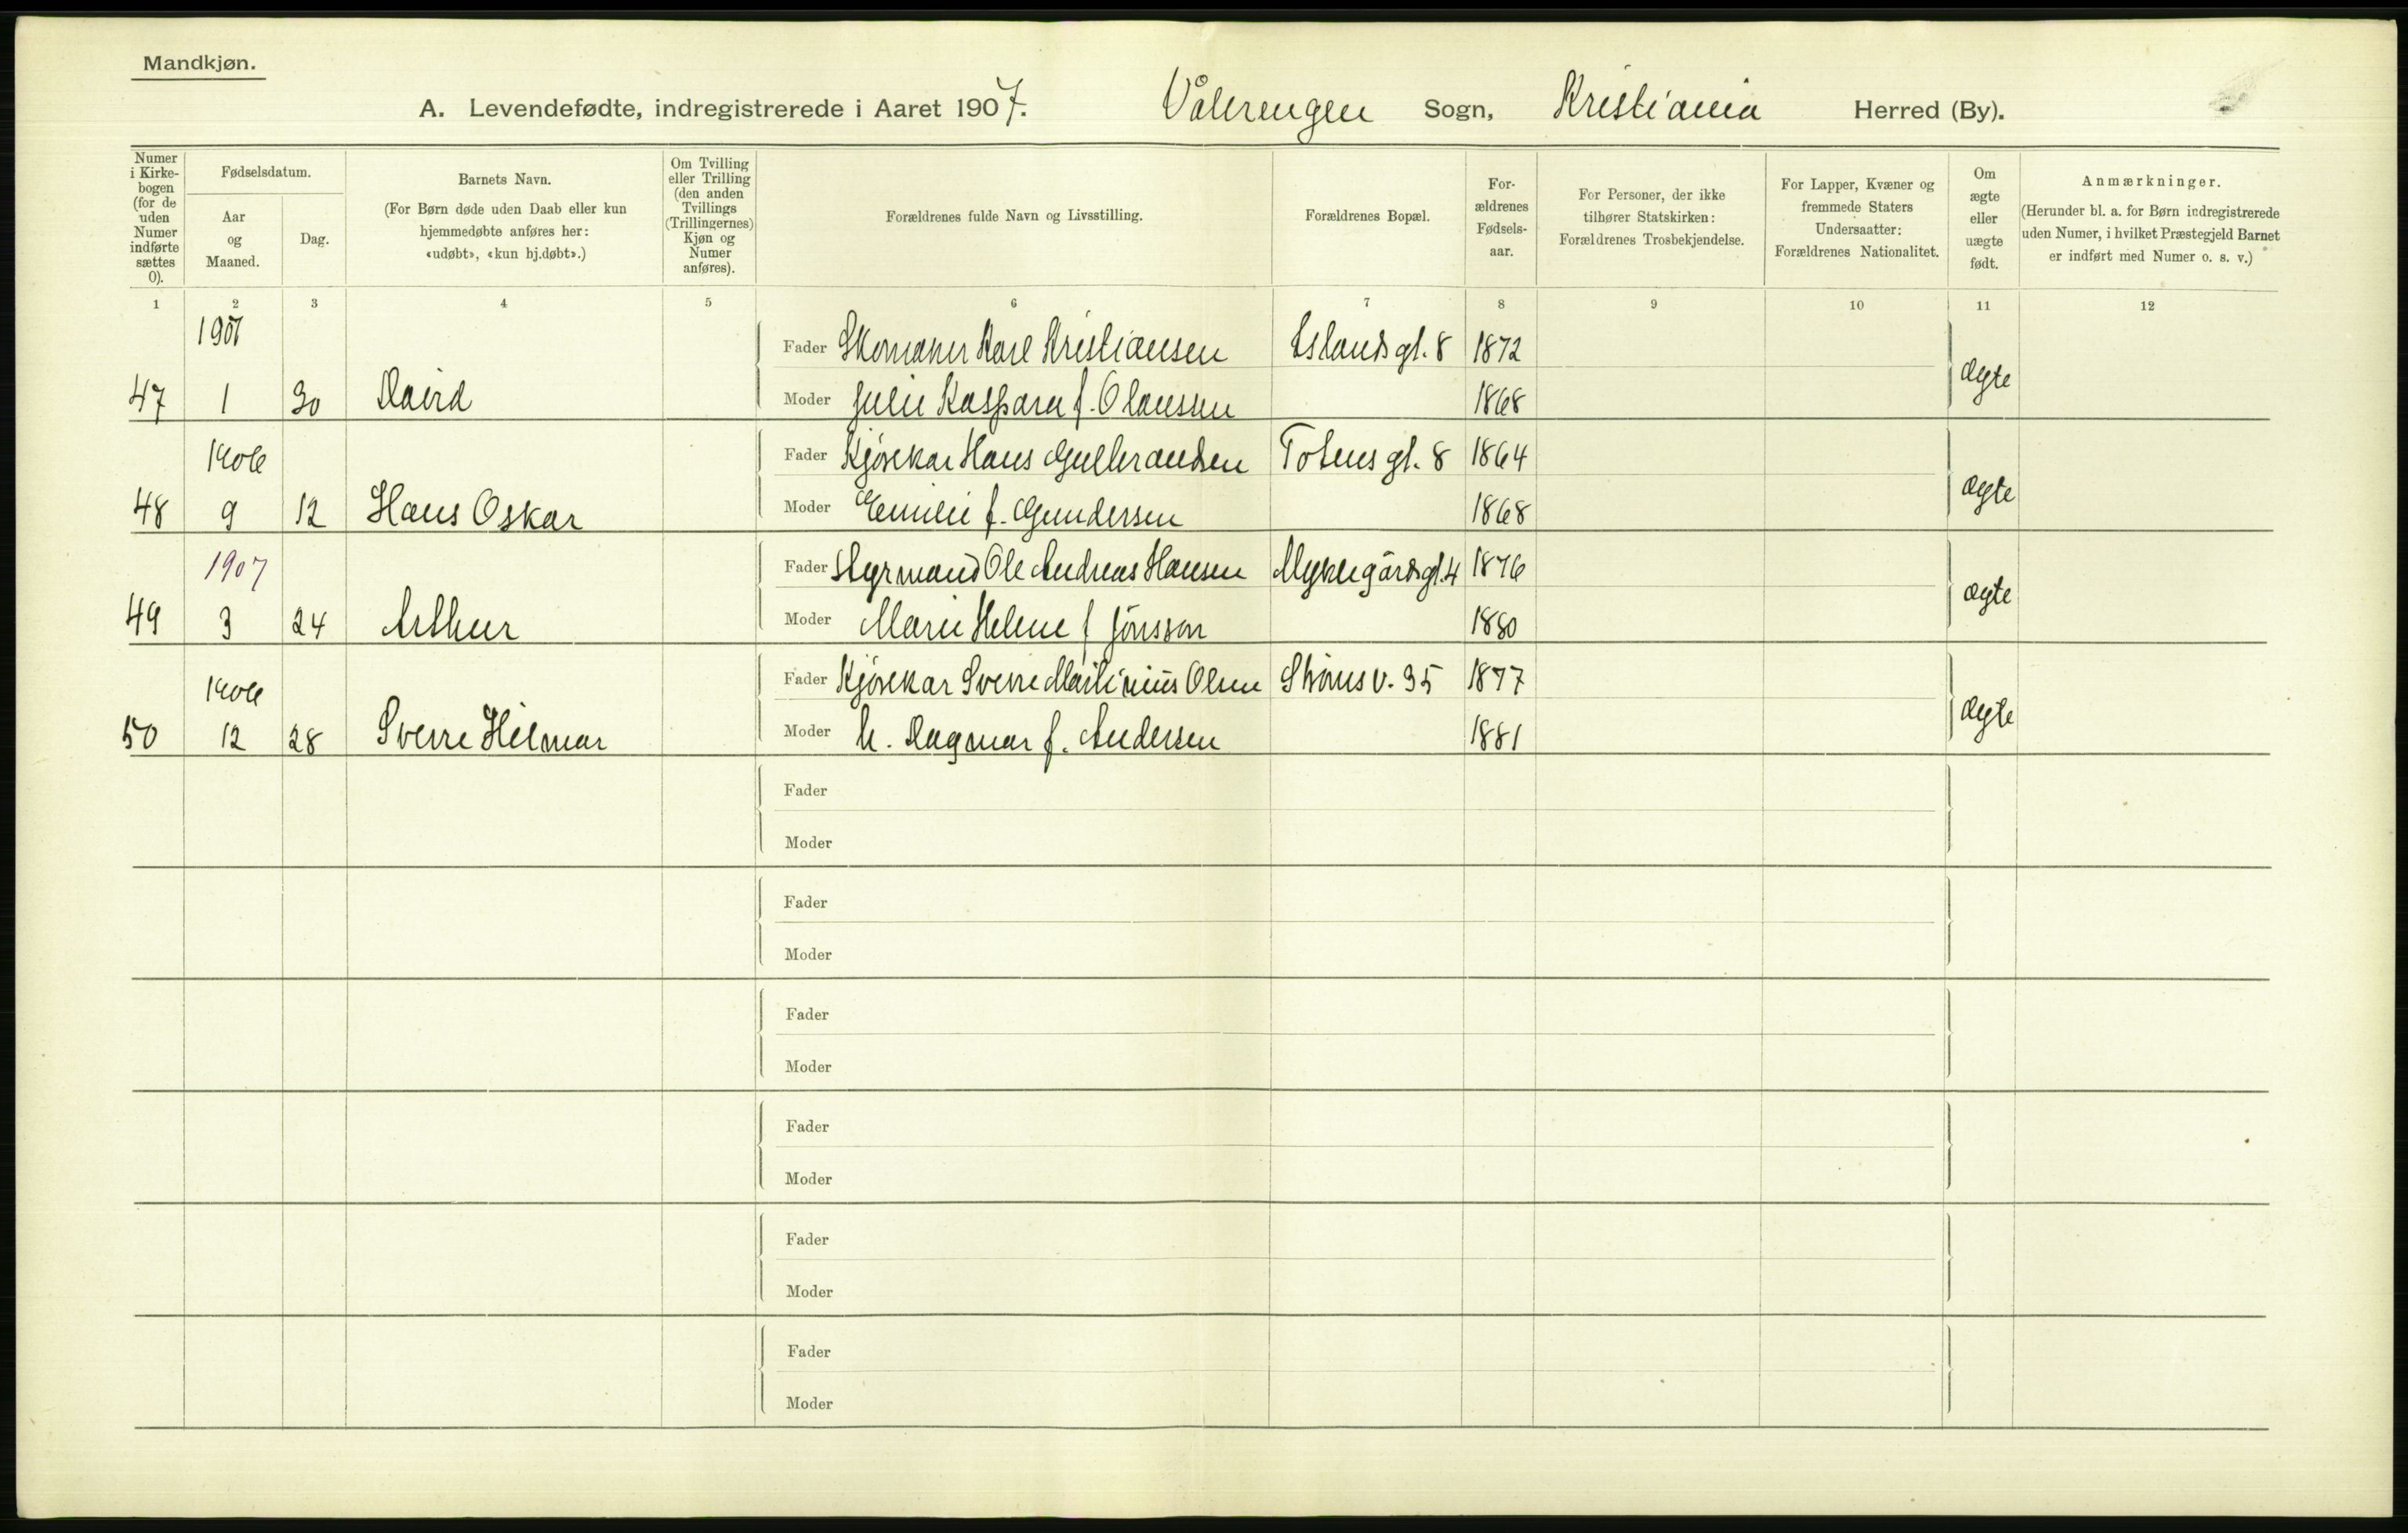 Mandkjøn.
A. Levendefødte, indregistrerede i Aaret 1907. Vålerengen Sogn, Kristiania Herred (By).
Numer i Kirkebogen (for de uden Numer indførte sættes 0).
Fødselsdatum.
Aar og Maaned.
Dag.
Barnets Navn.
(For Børn døde uden Daab eller kun hjemmedøbte anføres her: «udøbt», «kun hj.døbt».)
Om Tvilling eller Trilling (den anden Tvillings (Trillingernes) Kjøn og Numer anføres).
Forældrenes fulde Navn og Livsstilling.
Forældrenes Bopæl.
Forældrenes Fødselsaar.
For Personer, der ikke tilhører Statskirken: Forældrenes Trosbekjendelse.
For Lapper, Kvæner og fremmede Staters Undersaatter: Forældrenes Nationalitet.
Om ægte eller uægte født.
Anmærkninger.
(Herunder bl. a. for Børn indregistrerede uden Numer, i hvilket Præstegjeld Barnet er indført med Numer o. s. v.)
1 2 3 4 5 6 7 8 9 10 11 12
1907 Fader Skomaker Karl Kristiansen Eslands gt. 8 1872
47 1 30 David Moder Julie Kaspara f. Olaussen 1868 ægte
1906 Fader Kjørekar Hans Gulbrandsen Totens gt. 8 1864
48 9 12 Hans Oskar Moder Emilie f. Gundersen 1868 ægte
1907 Fader Styrmand Ole Andreas Hansen Myklegårdsgt. 4 1876
49 3 24 Arthur Moder Marie Helene f Jönsson 1880 ægte
1906 Fader Kjørekar Sverre Martinius Olsen Strømsv. 35 1877
50 12 28 Sverre Hilmar Moder Dagmar f. Andersen 1881 ægte
Fader
Moder
Fader
Moder
Fader
Moder
Fader
Moder
Fader
Moder
Fader
Moder